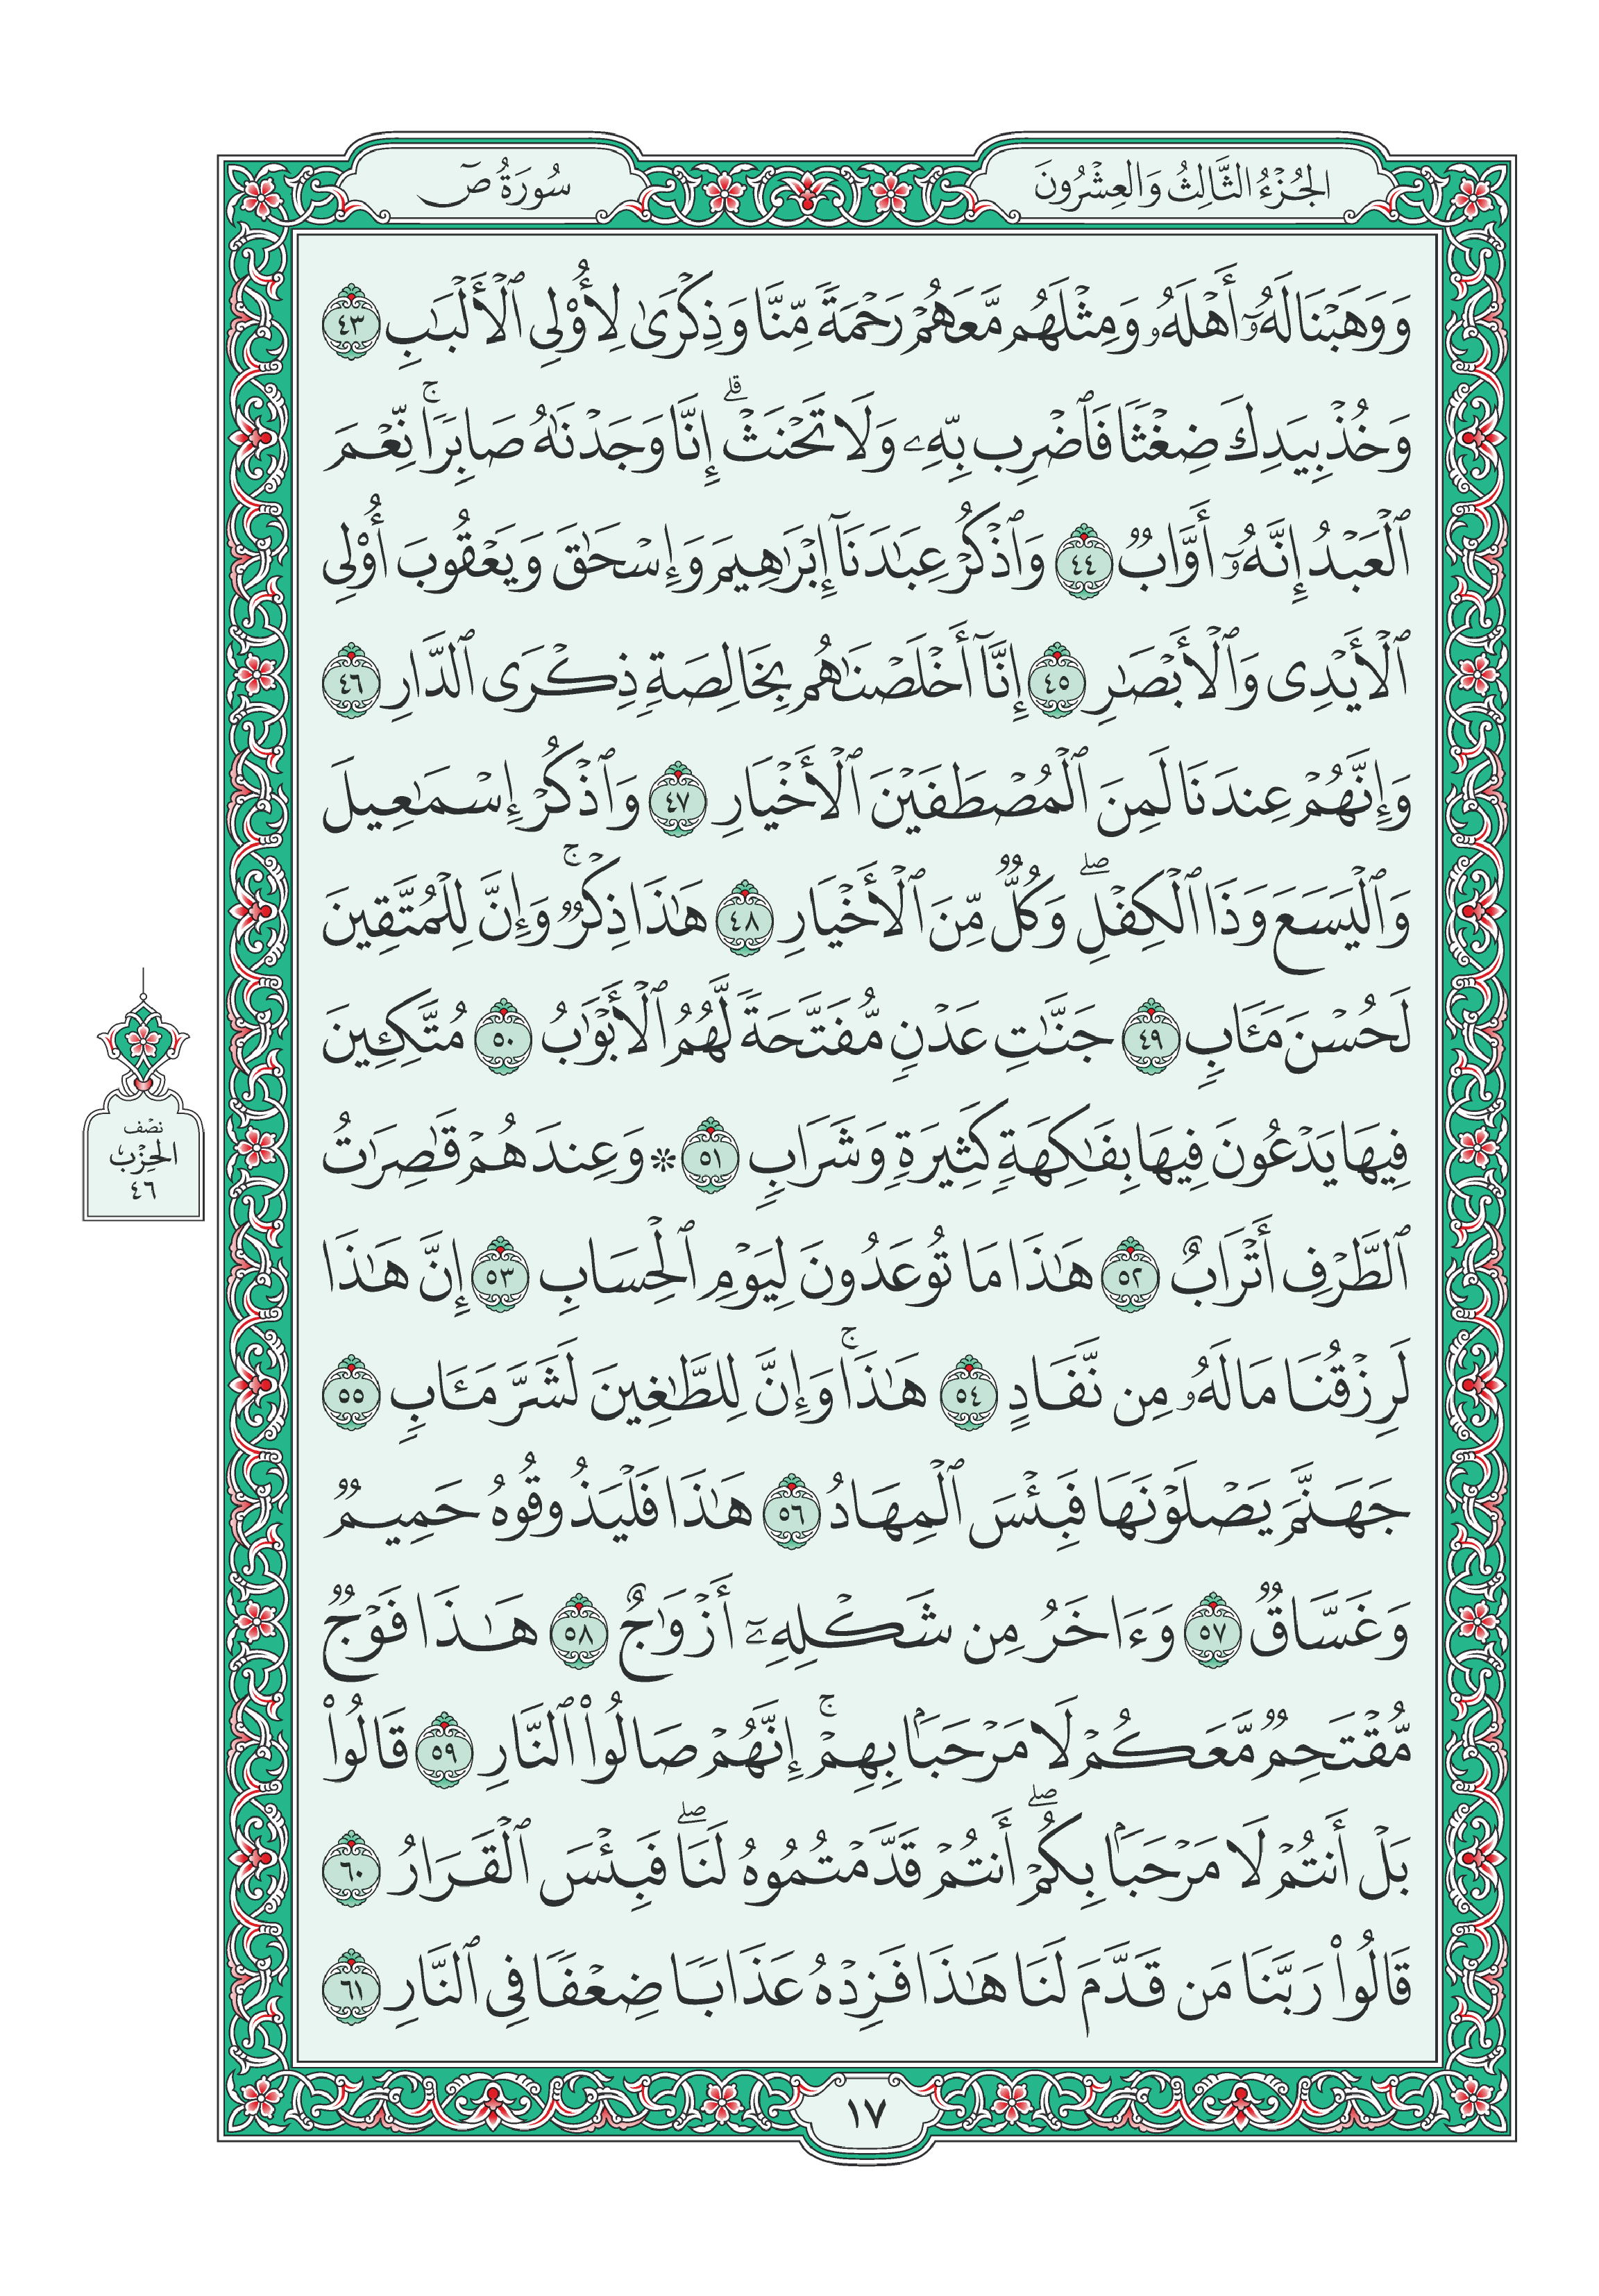 الجُزْءُ الثَّالِثُ وَالعِشْرُونَ
سُورَةُ صٓ
وَوَهَبْنَا لَهُۥٓ أَهْلَهُۥ وَمِثْلَهُم مَّعَهُمْ رَحْمَةً مِّنَّا وَذِكْرَىٰ لِأُو۟لِى ٱلْأَلْبَـٰبِ ٤٣
وَخُذْ بِيَدِكَ ضِغْثًا فَٱضْرِب بِّهِۦ وَلَا تَحْنَثْ ۗ إِنَّا وَجَدْنَـٰهُ صَابِرًا ۚ نِّعْمَ
ٱلْعَبْدُ إِنَّهُۥٓ أَوَّابٌ ٤٤ وَٱذْكُرْ عِبَـٰدَنَآ إِبْرَٰهِيمَ وَإِسْحَـٰقَ وَيَعْقُوبَ أُو۟لِى
ٱلْأَيْدِى وَٱلْأَبْصَـٰرِ ٤٥ إِنَّآ أَخْلَصْنَـٰهُم بِخَالِصَةٍ ذِكْرَى ٱلدَّارِ ٤٦
وَإِنَّهُمْ عِندَنَا لَمِنَ ٱلْمُصْطَفَيْنَ ٱلْأَخْيَارِ ٤٧ وَٱذْكُرْ إِسْمَـٰعِيلَ
وَٱلْيَسَعَ وَذَا ٱلْكِفْلِ ۖ وَكُلٌّ مِّنَ ٱلْأَخْيَارِ ٤٨ هَـٰذَا ذِكْرٌ ۚ وَإِنَّ لِلْمُتَّقِينَ
لَحُسْنَ مَـَٔابٍ ٤٩ جَنَّـٰتِ عَدْنٍ مُّفَتَّحَةً لَّهُمُ ٱلْأَبْوَٰبُ ٥٠ مُتَّكِـِٔينَ
فِيهَا يَدْعُونَ فِيهَا بِفَـٰكِهَةٍ كَثِيرَةٍ وَشَرَابٍ ٥١ * وَعِندَهُمْ قَـٰصِرَٰتُ
ٱلطَّرْفِ أَتْرَابٌ ٥٢ هَـٰذَا مَا تُوعَدُونَ لِيَوْمِ ٱلْحِسَابِ ٥٣ إِنَّ هَـٰذَا
لَرِزْقُنَا مَا لَهُۥ مِن نَّفَادٍ ٥٤ هَـٰذَا ۚ وَإِنَّ لِلطَّـٰغِينَ لَشَرَّ مَـَٔابٍ ٥٥
جَهَنَّمَ يَصْلَوْنَهَا فَبِئْسَ ٱلْمِهَادُ ٥٦ هَـٰذَا فَلْيَذُوقُوهُ حَمِيمٌ
وَغَسَّاقٌ ٥٧ وَءَاخَرُ مِن شَكْلِهِۦٓ أَزْوَٰجٌ ٥٨ هَـٰذَا فَوْجٌ
مُّقْتَحِمٌ مَّعَكُمْ لَا مَرْحَبًۢا بِهِمْ ۚ إِنَّهُمْ صَالُوا۟ ٱلنَّارِ ٥٩ قَالُوا۟
بَلْ أَنتُمْ لَا مَرْحَبًۢا بِكُمْ ۖ أَنتُمْ قَدَّمْتُمُوهُ لَنَا ۖ فَبِئْسَ ٱلْقَرَارُ ٦٠
قَالُوا۟ رَبَّنَا مَن قَدَّمَ لَنَا هَـٰذَا فَزِدْهُ عَذَابًا ضِعْفًا فِى ٱلنَّارِ ٦١
نصْف
الحِزْب
٤٦
١٧